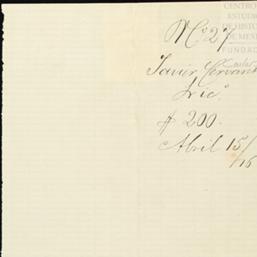 CENTRO
ESTUDIO
DE HISTO
DE MEXI
FUNDA
No 27
Javier Cervant
Lic.
$ 200.
Abril 15/
/16